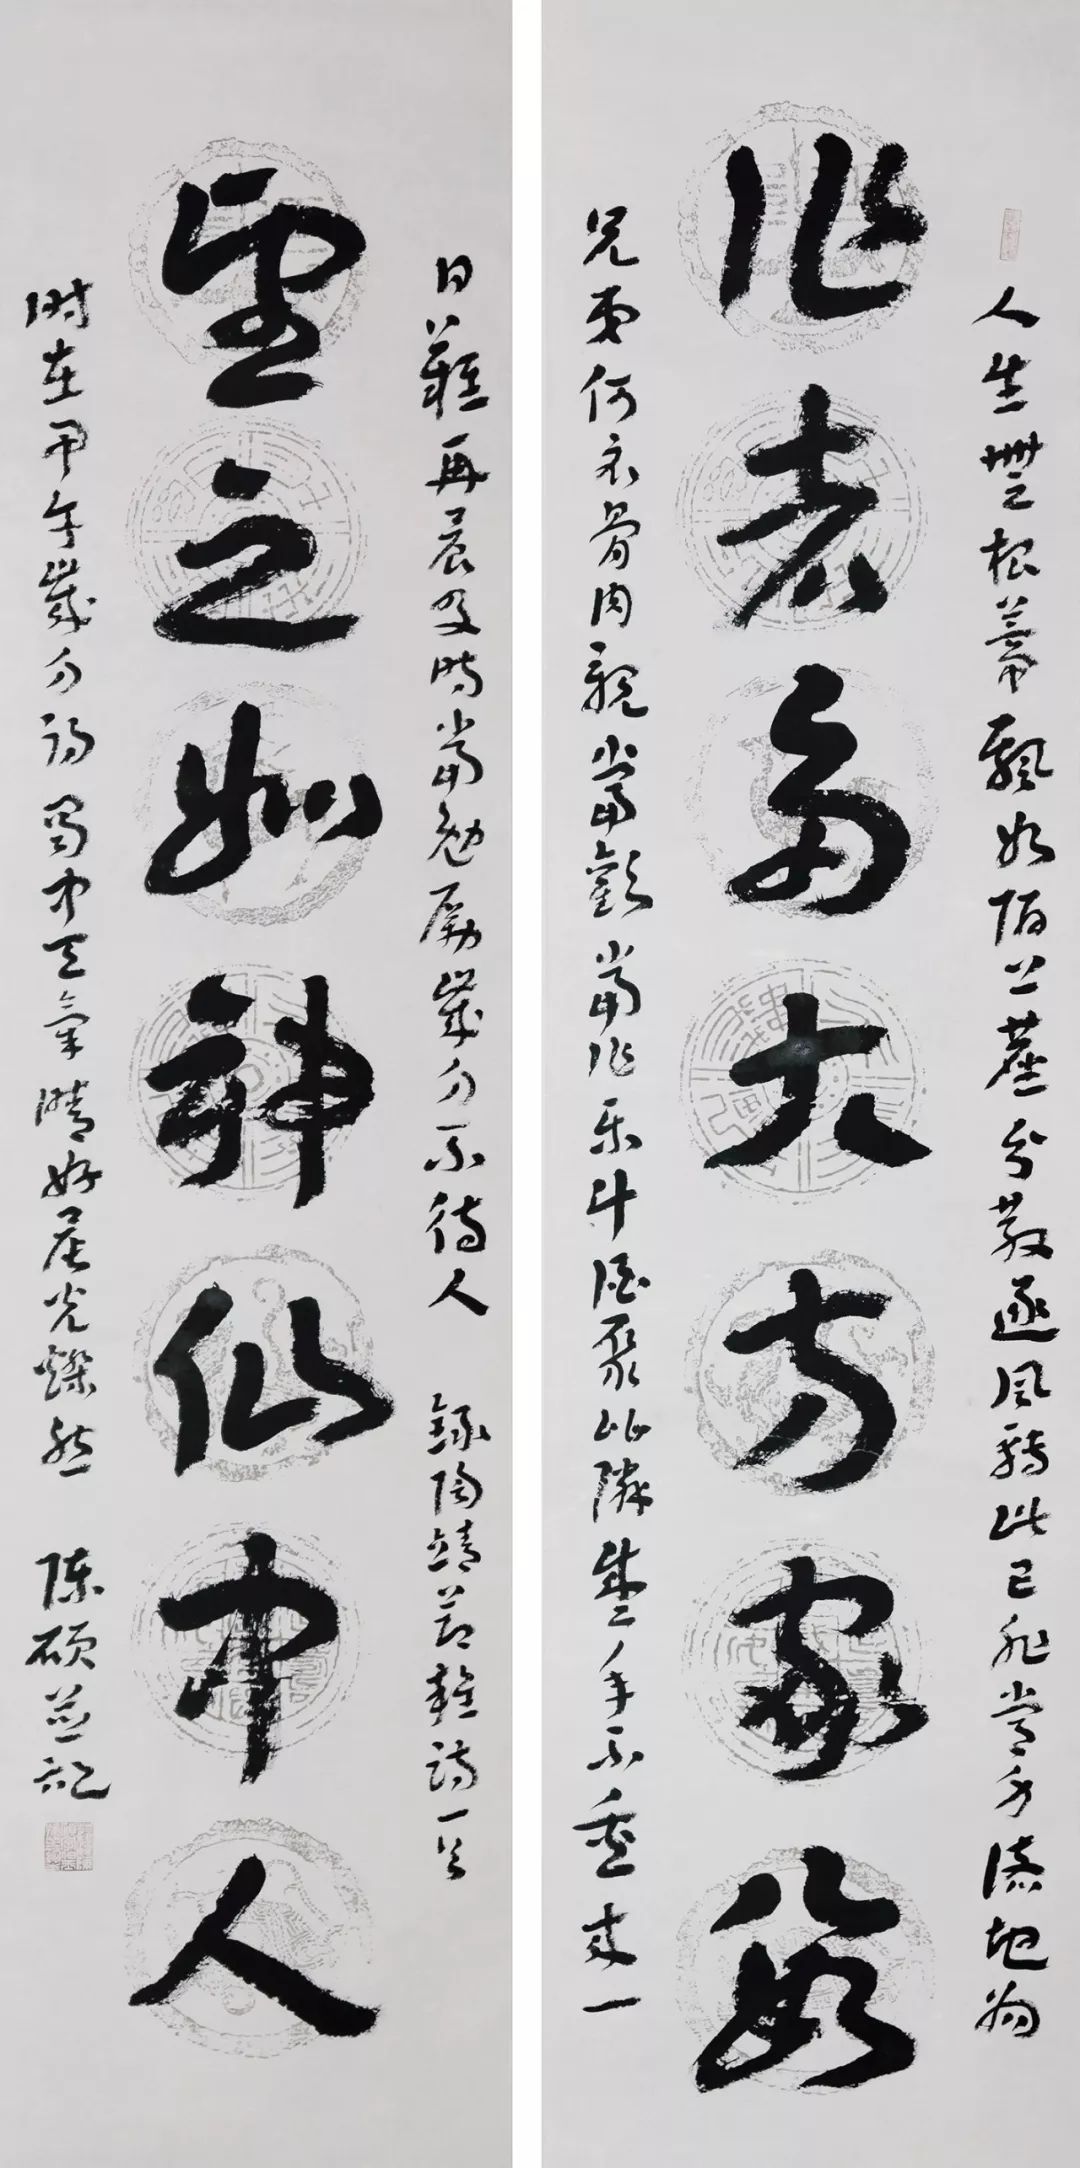 人生無根蒂飄如陌上塵分散逐風轉此已非常身落地為
作者多大方家數
兄弟何必骨肉親當歡當作樂斗酒聚比隣盛年不重來一
日難再晨及時當勉勵歲月不待人 錄陶靖節雜詩一首
望之如神仙中人
时在甲午歲月 蜀中天氣晴好星光爍然 陈硕並記